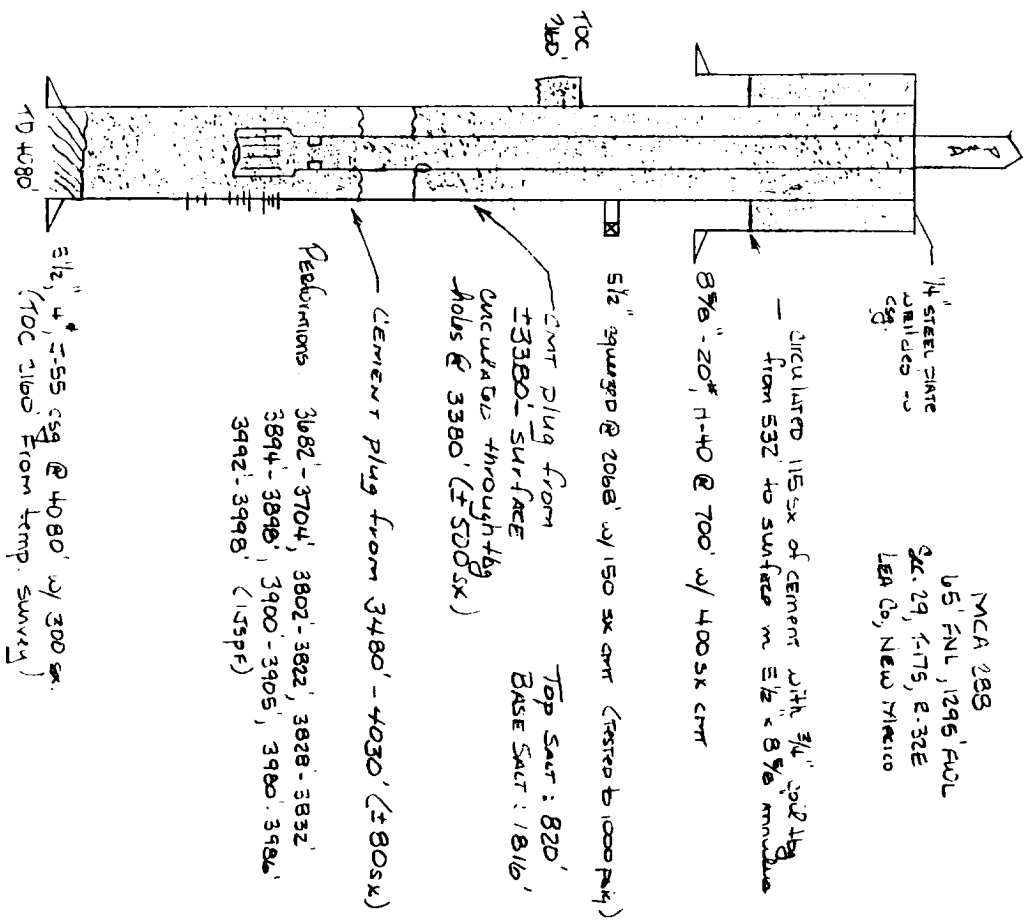 MCA 288
65' FNL, 1295' FWL
Sec. 29, T-17S, R-32E
LEA Co, NEW MEXICO
P&A
1/4" STEEL PLATE
WELDED TO
CSG.
— Circulated 115 sx of cement with 3/4" coil tbg
from 532' to surface in 5 1/2" x 8 5/8" annulus
8 5/8" - 20#, H-40 @ 700' w/ 400 sx CMT
5 1/2" squeezed @ 2068' w/ 150 sx cmt (TESTED to 1000 psig)
TOC
2160'
Top SALT : 820'
BASE SALT : 1816'
CMT plug from
±3380' - SURFACE
circulated through tbg
holes @ 3380' (± 500 sx)
CEMENT plug from 3480' - 4030' (±80 sx)
PERFORATIONS 3682' - 3704', 3802' - 3822', 3828' - 3832'
3894' - 3898', 3900' - 3905', 3980' - 3986'
3992' - 3998' (1JSPF)
5 1/2", 14#, J-55 csg @ 4080' w/ 300 sx.
(TOC 2160' From temp. survey)
TD 4080'